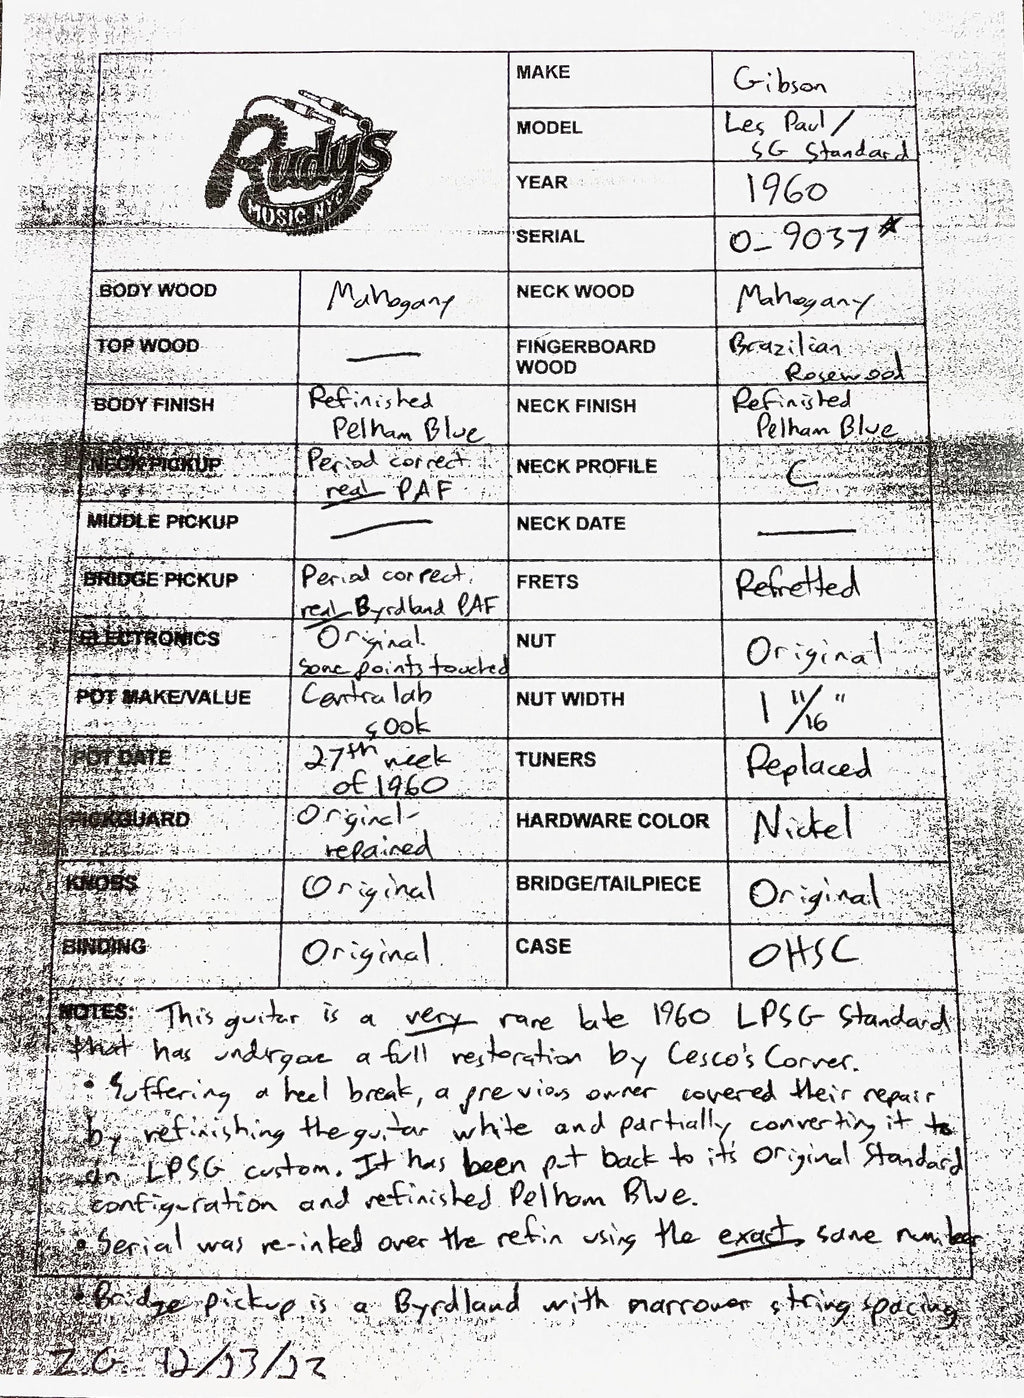 Rudy's
MUSIC NYC
MAKE Gibson
MODEL Les Paul/
SG Standard
YEAR 1960
SERIAL 0_9037*
BODY WOOD Mahogany NECK WOOD Mahogany
TOP WOOD — FINGERBOARD WOOD Brazilian
Rosewood
BODY FINISH Refinished
Pelham Blue
NECK FINISH Refinished
Pelham Blue
NECK PICKUP Period correct
real PAF
NECK PROFILE C
MIDDLE PICKUP — NECK DATE —
BRIDGE PICKUP Period correct,
real Byrdland PAF
FRETS Refretted
ELECTRONICS Original
some points touched
NUT Original
POT MAKE/VALUE Centralab
500k
NUT WIDTH 1 11/16"
POT DATE 27th week
of 1960
TUNERS Replaced
PICKGUARD Original-
repaired
HARDWARE COLOR Nickel
KNOBS Original BRIDGE/TAILPIECE Original
BINDING Original CASE OHSC
NOTES: This guitar is a very rare late 1960 LPSG Standard
that has undergone a full restoration by Cesco's Corner.
• Suffering a heel break, a previous owner covered their repair
by refinishing the guitar white and partially converting it to
an LPSG custom. It has been put back to it's Original Standard
configuration and refinished Pelham Blue.
• Serial was re-inked over the refin using the exact same number
• Bridge pickup is a Byrdland with narrower string spacing
Z.G. 12/23/23